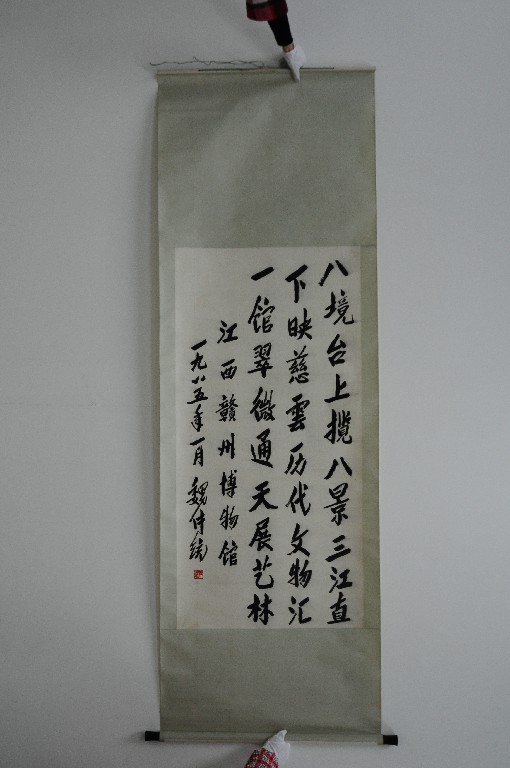 八境台上揽八景三江直
下映慈雲历代文物汇
一馆翠微通天展艺林
江西赣州博物馆
一九八五年一月 魏传统